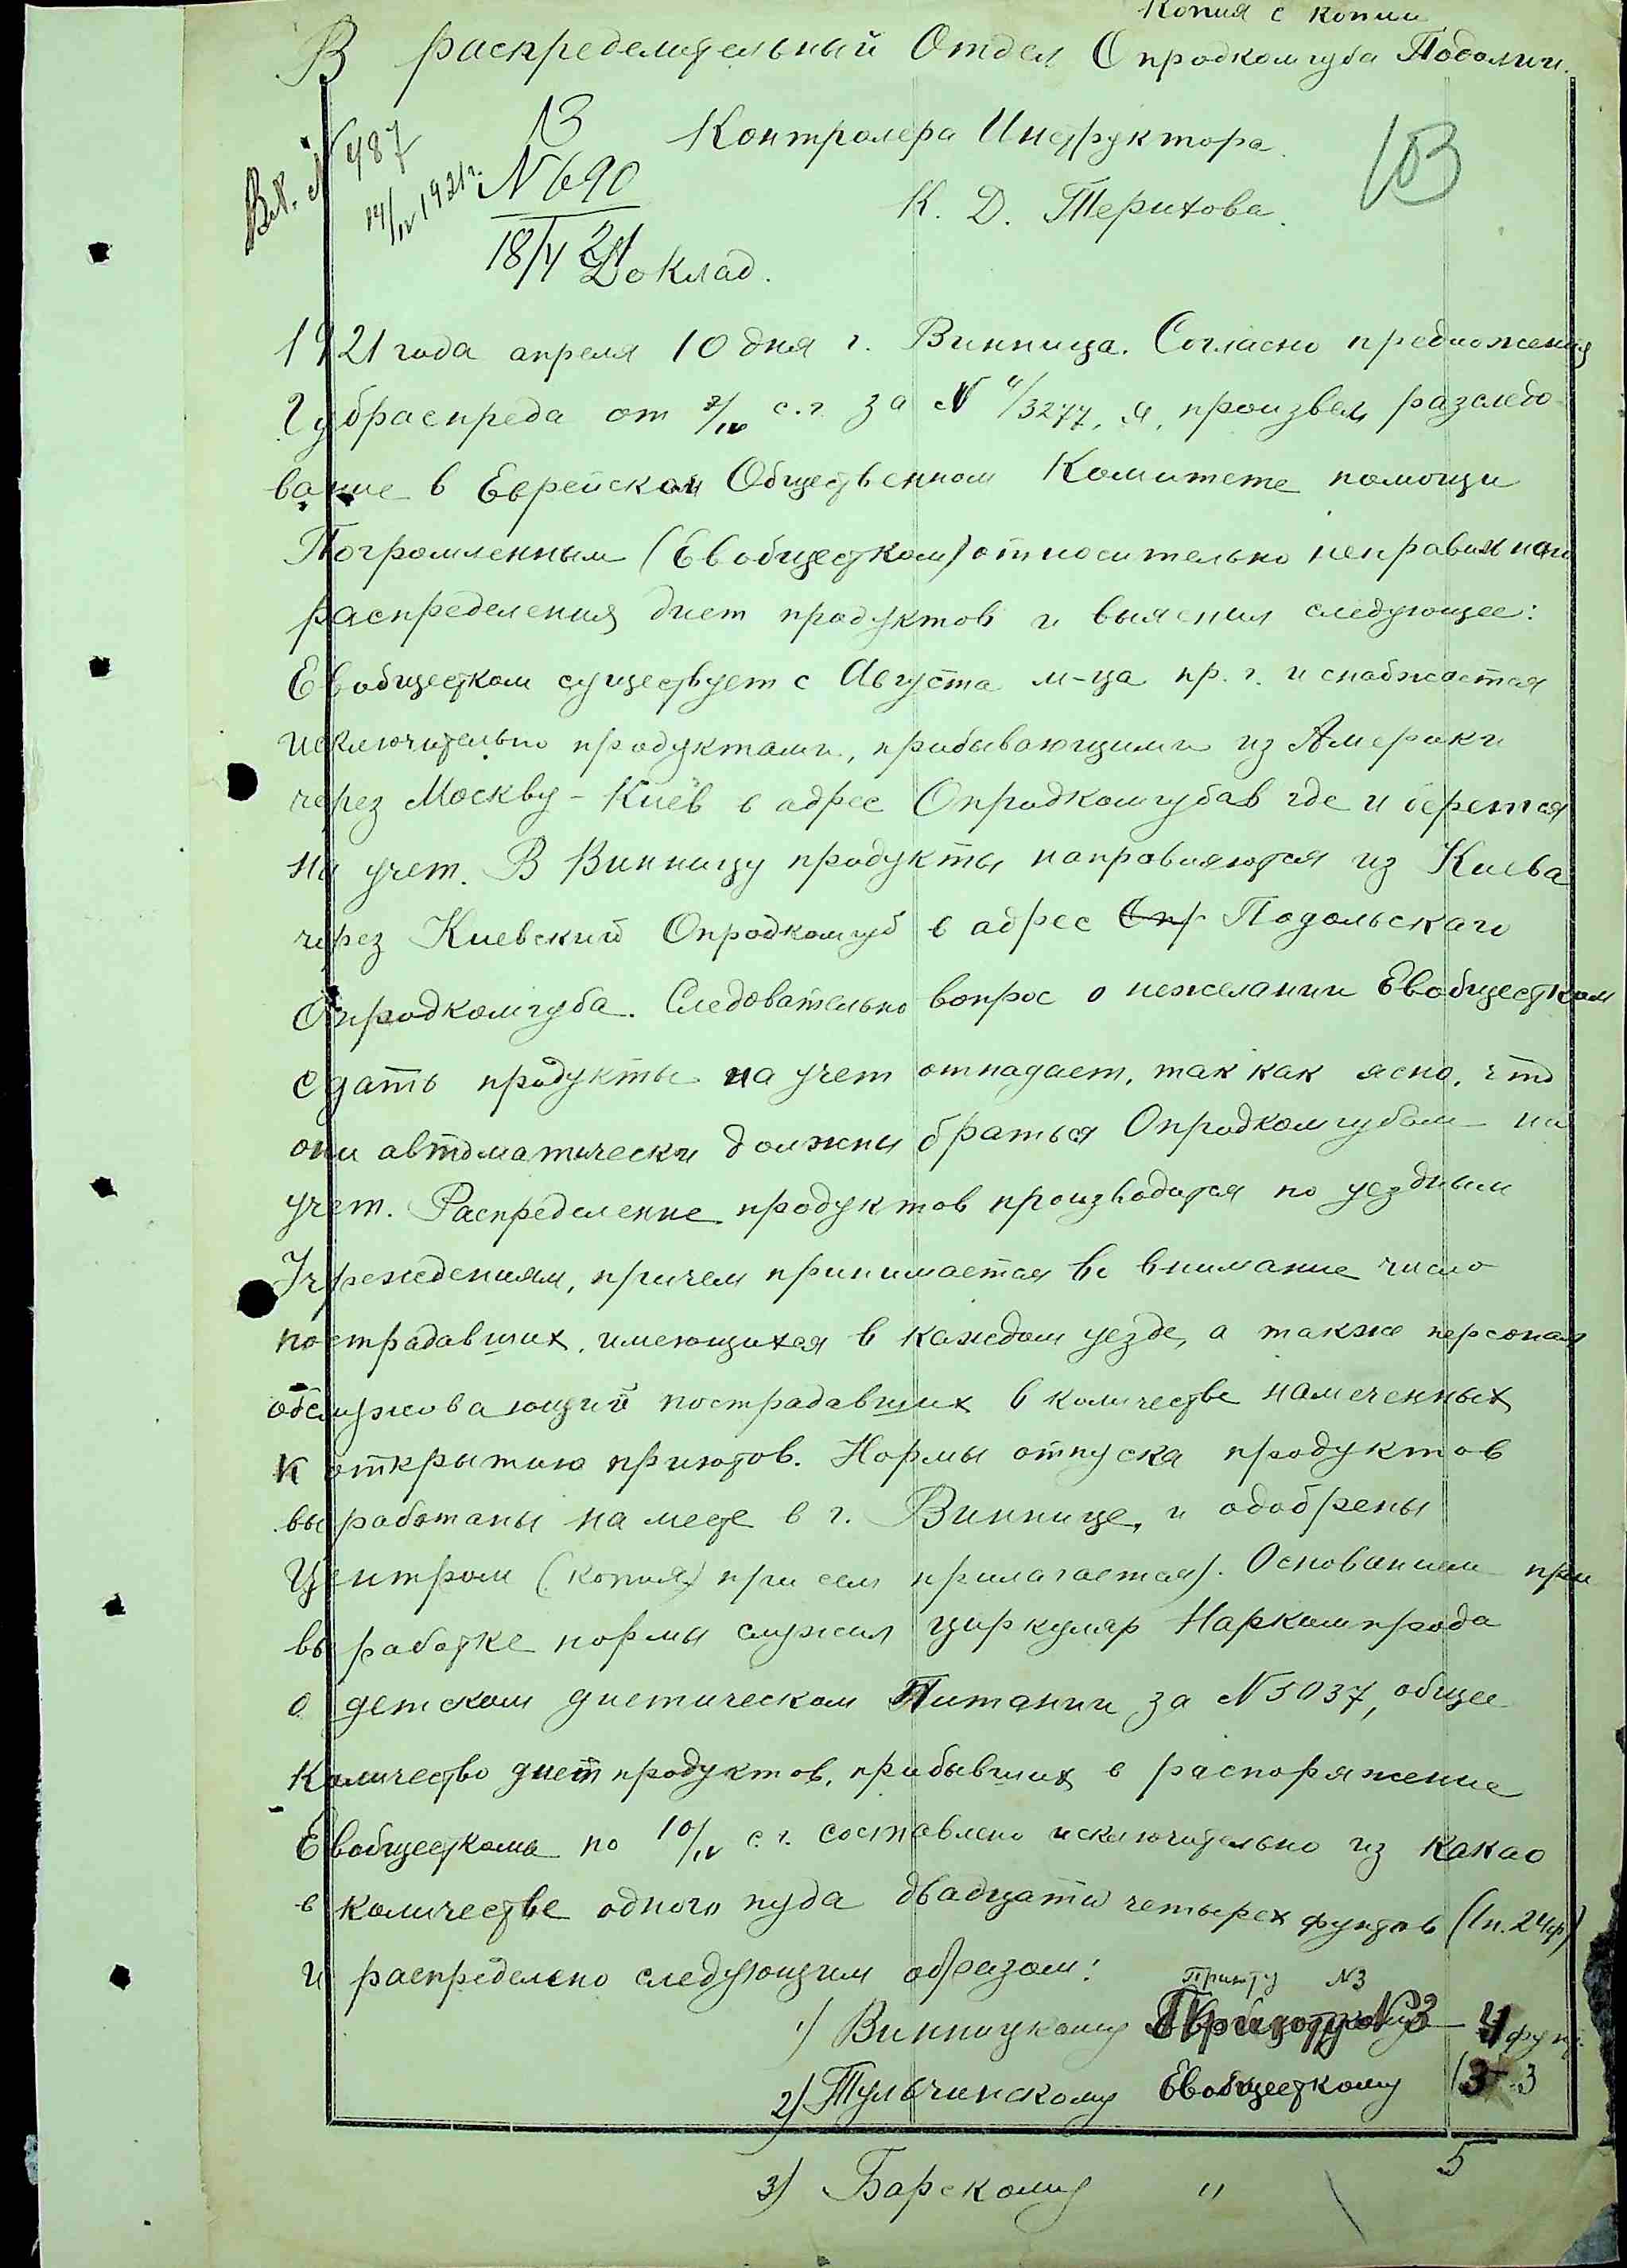 Копия с копии
В распределительный Отдел Опродкомгуба Подолии.
Вх. N 487
14/IV 1921 г.
N 690
18/IV 21
Контролера Инструктора
К. Д. Терихова.
103
Доклад.
1921 года апреля 10 дня г. Винница. Согласно предложения
Губраспреда от 7/IV с.г. за N 4/3277, я, произвел разследо-
вание в Еврейском Общественном Комитете помощи
Погромленным (Евобщестком) относительно неправильного
распределения диет продуктов и выяснил следующее:
Евобщестком существует с Августа м-ца пр. г. и снабжается
исключительно продуктами, прибывающими из Америки
через Москву - Киев в адрес Опродкомгубав где и берется
на учет. В Винницу продукты направляются из Киева
через Киевский Опродкомгуб в адрес Опр Подольскаго
Опродкомгуба. Следовательно вопрос о нежелании Евобщестком
сдать продукты на учет отпадает, так как ясно, что
они автоматически должны браться Опродкомгубом на
учет. Распределение продуктов производится по уездным
Учреждениям, причем принимается во внимание число
пострадавших, имеющихся в каждом уезде, а также персонал
обслуживающий пострадавших в количестве намеченных
к открытию приютов. Нормы отпуска продуктов
выработаны на месте в г. Виннице, и одобрены
Центром (копия при сем прилагается). Основанием при
выработке нормы служил циркуляр Наркомпрода
о детском диетическом Питании за N 5037, общее
Количество диет продуктов, прибывших в распоряжение
Евобщесткома по 10/IV с.г. составлено исключительно из какао
в количестве одного пуда двадцати четырех фунтов (1п. 24ф)
и распределено следующим образом:
Приюту N3
1) Винницкому Приюту N3 — 4 фун.
2) Тульчинскому Евобщесткому 3
3) Барскому " 5